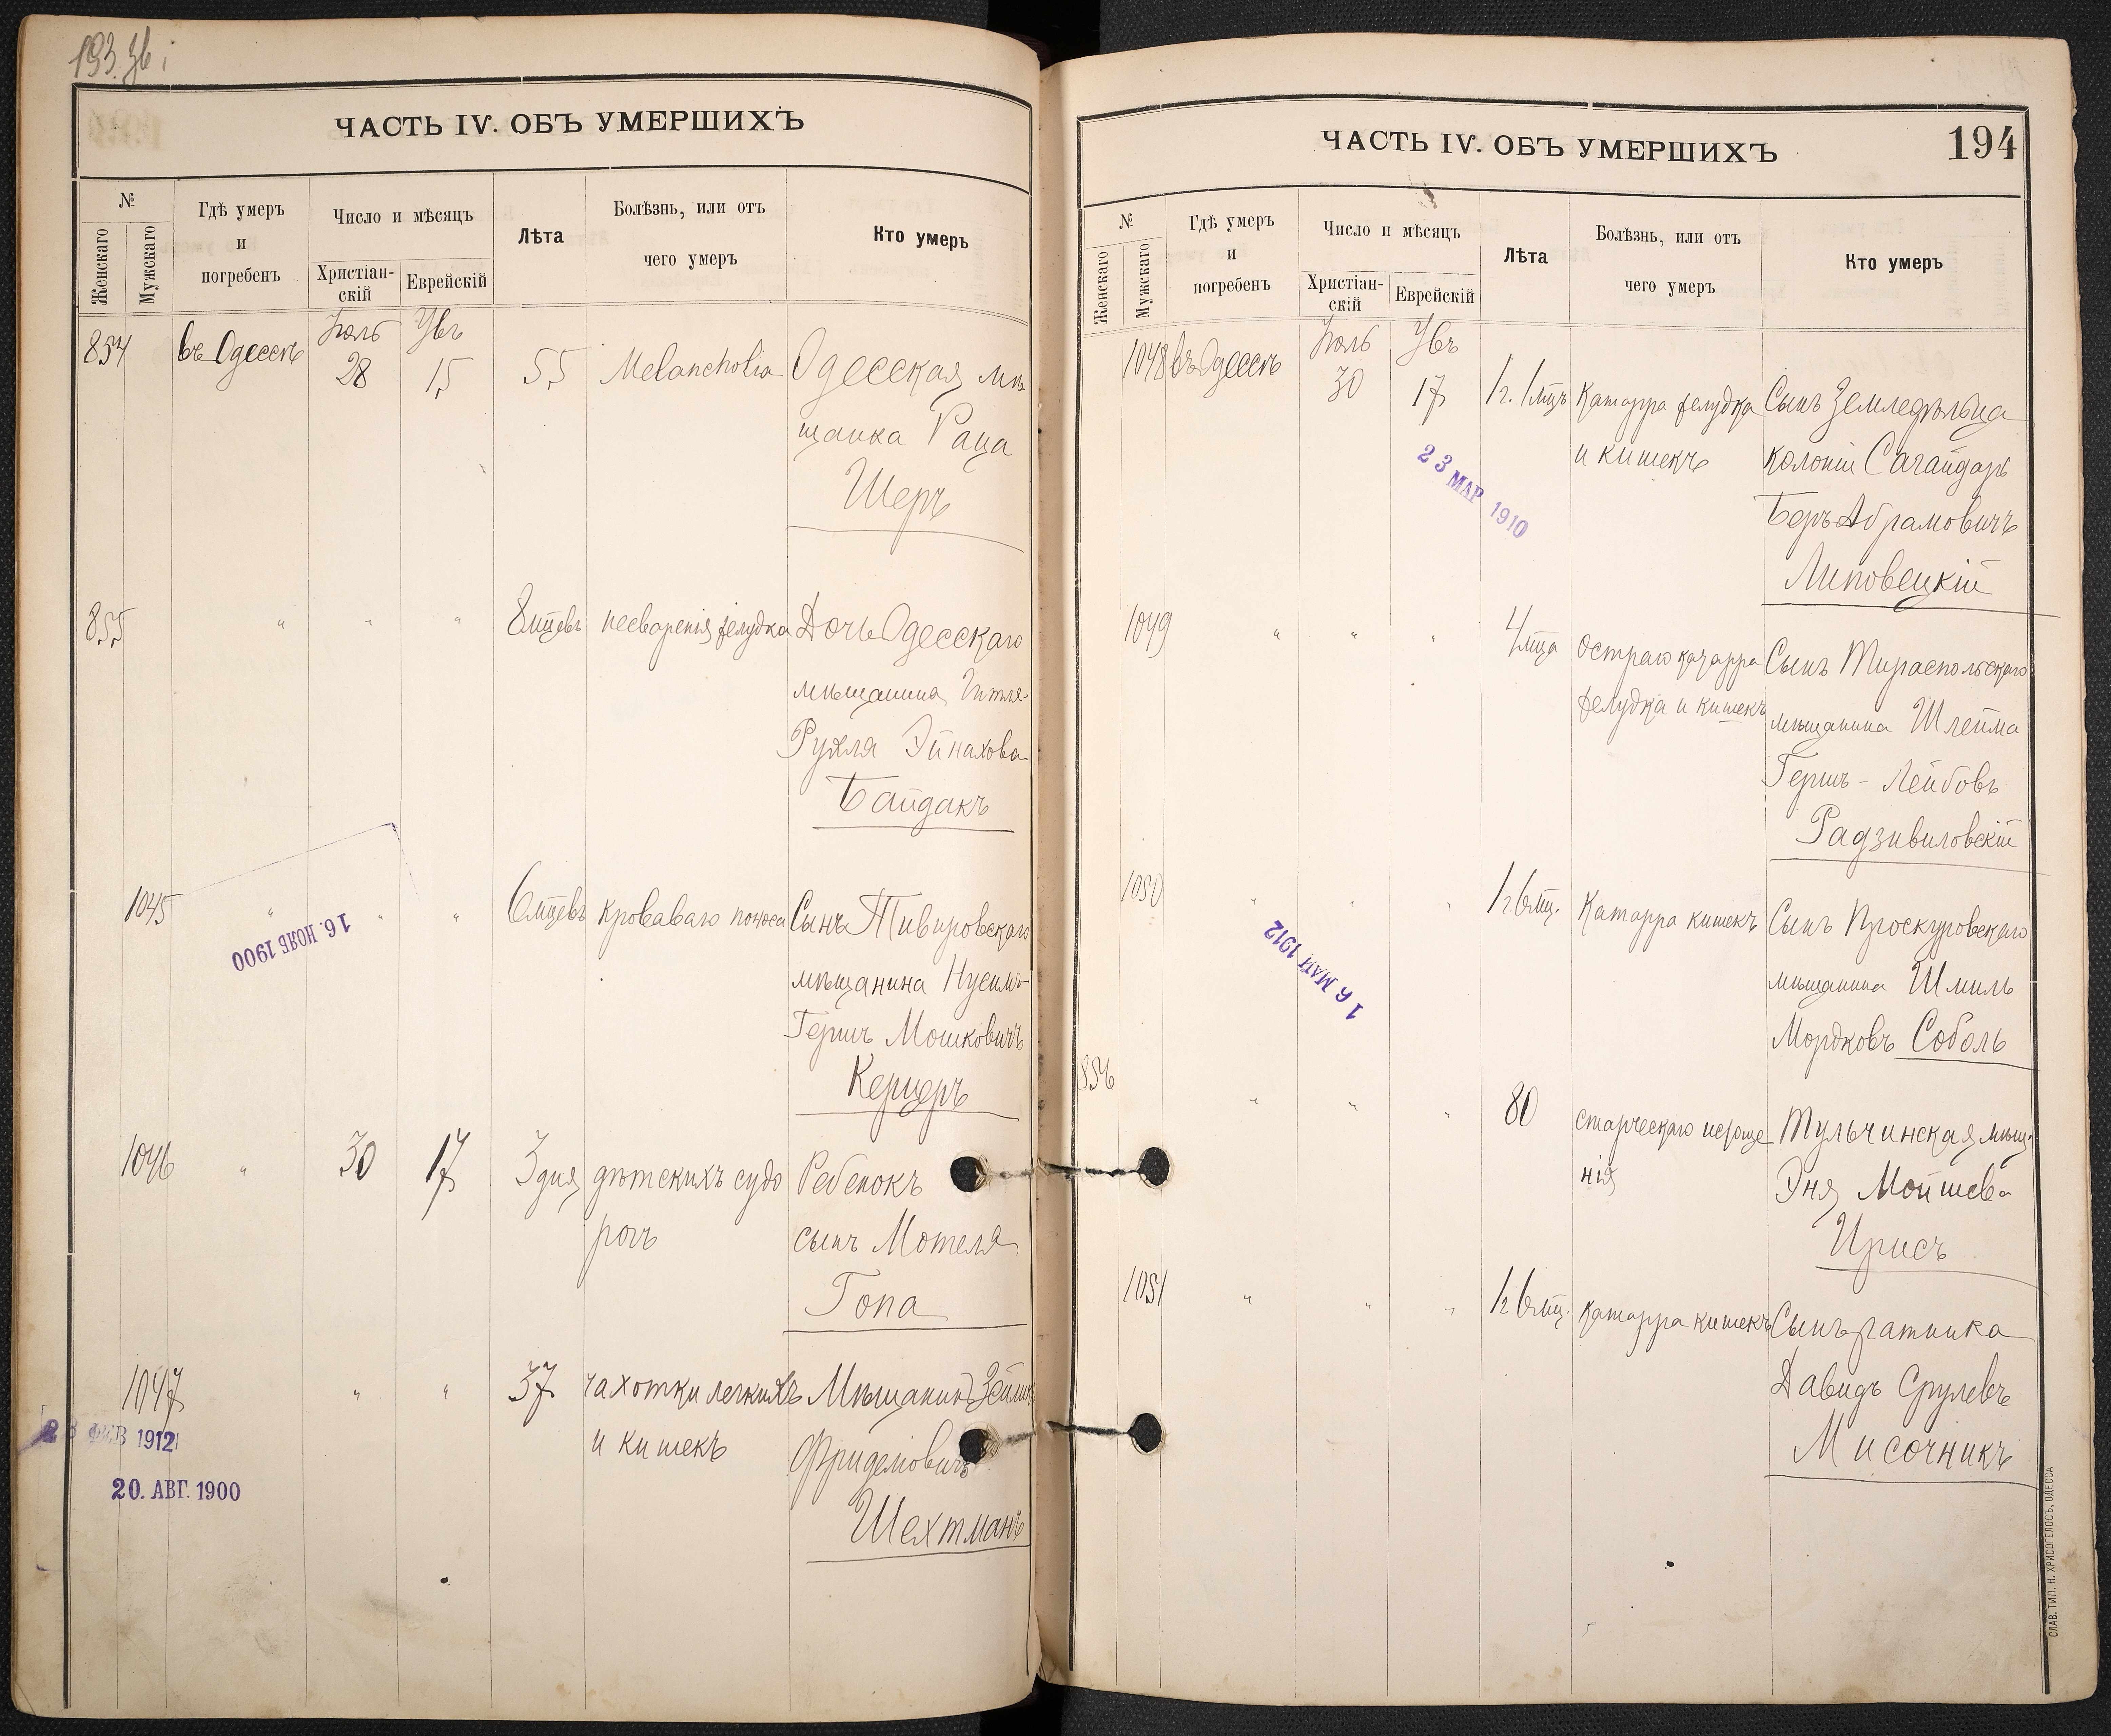 193 зв.
ЧАСТЬ IV. ОБЪ УМЕРШИХЪ
№
Женскаго
Мужскаго
Гдѣ умеръ
и
погребенъ
Число и мѣсяцъ
Христіан-
скій
Еврейскій
Лѣта
Болѣзнь, или отъ
чего умеръ
Кто умеръ
854 въ Одессѣ Іюль 28 Увъ 15 55 Melancholia Одесская мѣ
щанка Раца
Шеръ
855 " " " 8 мцевъ несваренія желудка Дочь Одесскаго
мѣщанина Гитля-
Рухля Эйнахова
Байдакъ
1045 " " " 6 мцевъ кроваваго поноса Сынъ Тивировскаго
мѣщанина Нусимъ-
Гершъ Мошковичъ
Керцеръ
16. НОЯБ 1900
1046 " 30 17 3 дня дѣтскихъ судо Ребенокъ
рогъ сынъ Мотеля
Гопа
1047 " " 37 чахотки легкихъ Мѣщанинъ
и кишекъ
Шехтманъ
ФЕВ 1912
20. АВГ. 1900
ЧАСТЬ IV. ОБЪ УМЕРШИХЪ
194
№
Женскаго
Мужскаго
Гдѣ умеръ
и
погребенъ
Число и мѣсяцъ
Христіан-
скій
Еврейскій
Лѣта
Болѣзнь, или отъ
чего умеръ
Кто умеръ
1048 въ Одессѣ Іюль 30 Увъ 17 1 г. 1 мцъ Катарра желудка Сынъ Земледѣльца
и кишекъ колоніи Сагайдакъ
Беръ Абрамовичъ
Липовецкій
23 МАР 1910
1049 " " " 4 мца Остраго катарра Сынъ Тираспольскаго
желудка и кишекъ мѣщанина Шлейма
Гершъ-Лейбовъ
Радзивиловскій
1050 " " " 1 г. 6 мц. Катарра кишекъ Сынъ Проскуровскаго
мѣщанина Шмиль
Мордковъ Соболь
16 МАЙ 1912
856 " " " 80 старческаго истоще Тульчинская мѣщ.
нія Эня Мойшева
Ирисъ
1051 " " " 1 г 6 мц. катарра кишекъ Сынъ ратника
Давидъ Срулевъ
Мисочникъ
СЛАВ. ТИП. Н. ХРИСОГЕЛОСЪ, ОДЕССА